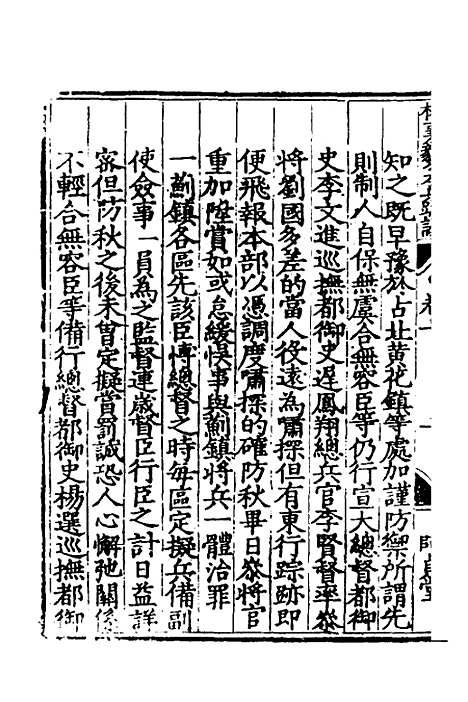 知之既早豫於古北黄花鎮等處加謹防禦所謂先
則制人自保無虞合無容臣等仍行宣大總督都御
史李文進巡撫都御史遲鳳翔總兵官李賢督率叅
將劉國多差的當人役遠為哨探但有東行踪跡即
便飛報本部以憑調度哨探的確防秋畢日叅將官
重加陞賞如或怠緩悮事與薊鎮將兵一體治罪
一薊鎮各區先該臣博總督之時每區定擬兵備副
使僉事一員為之監督連歲督臣行臣之計日益詳
密但防秋之後未曾定擬賞罰誠恐人心懈弛關係
不輕合無容臣等備行總督都御史楊選巡撫都御